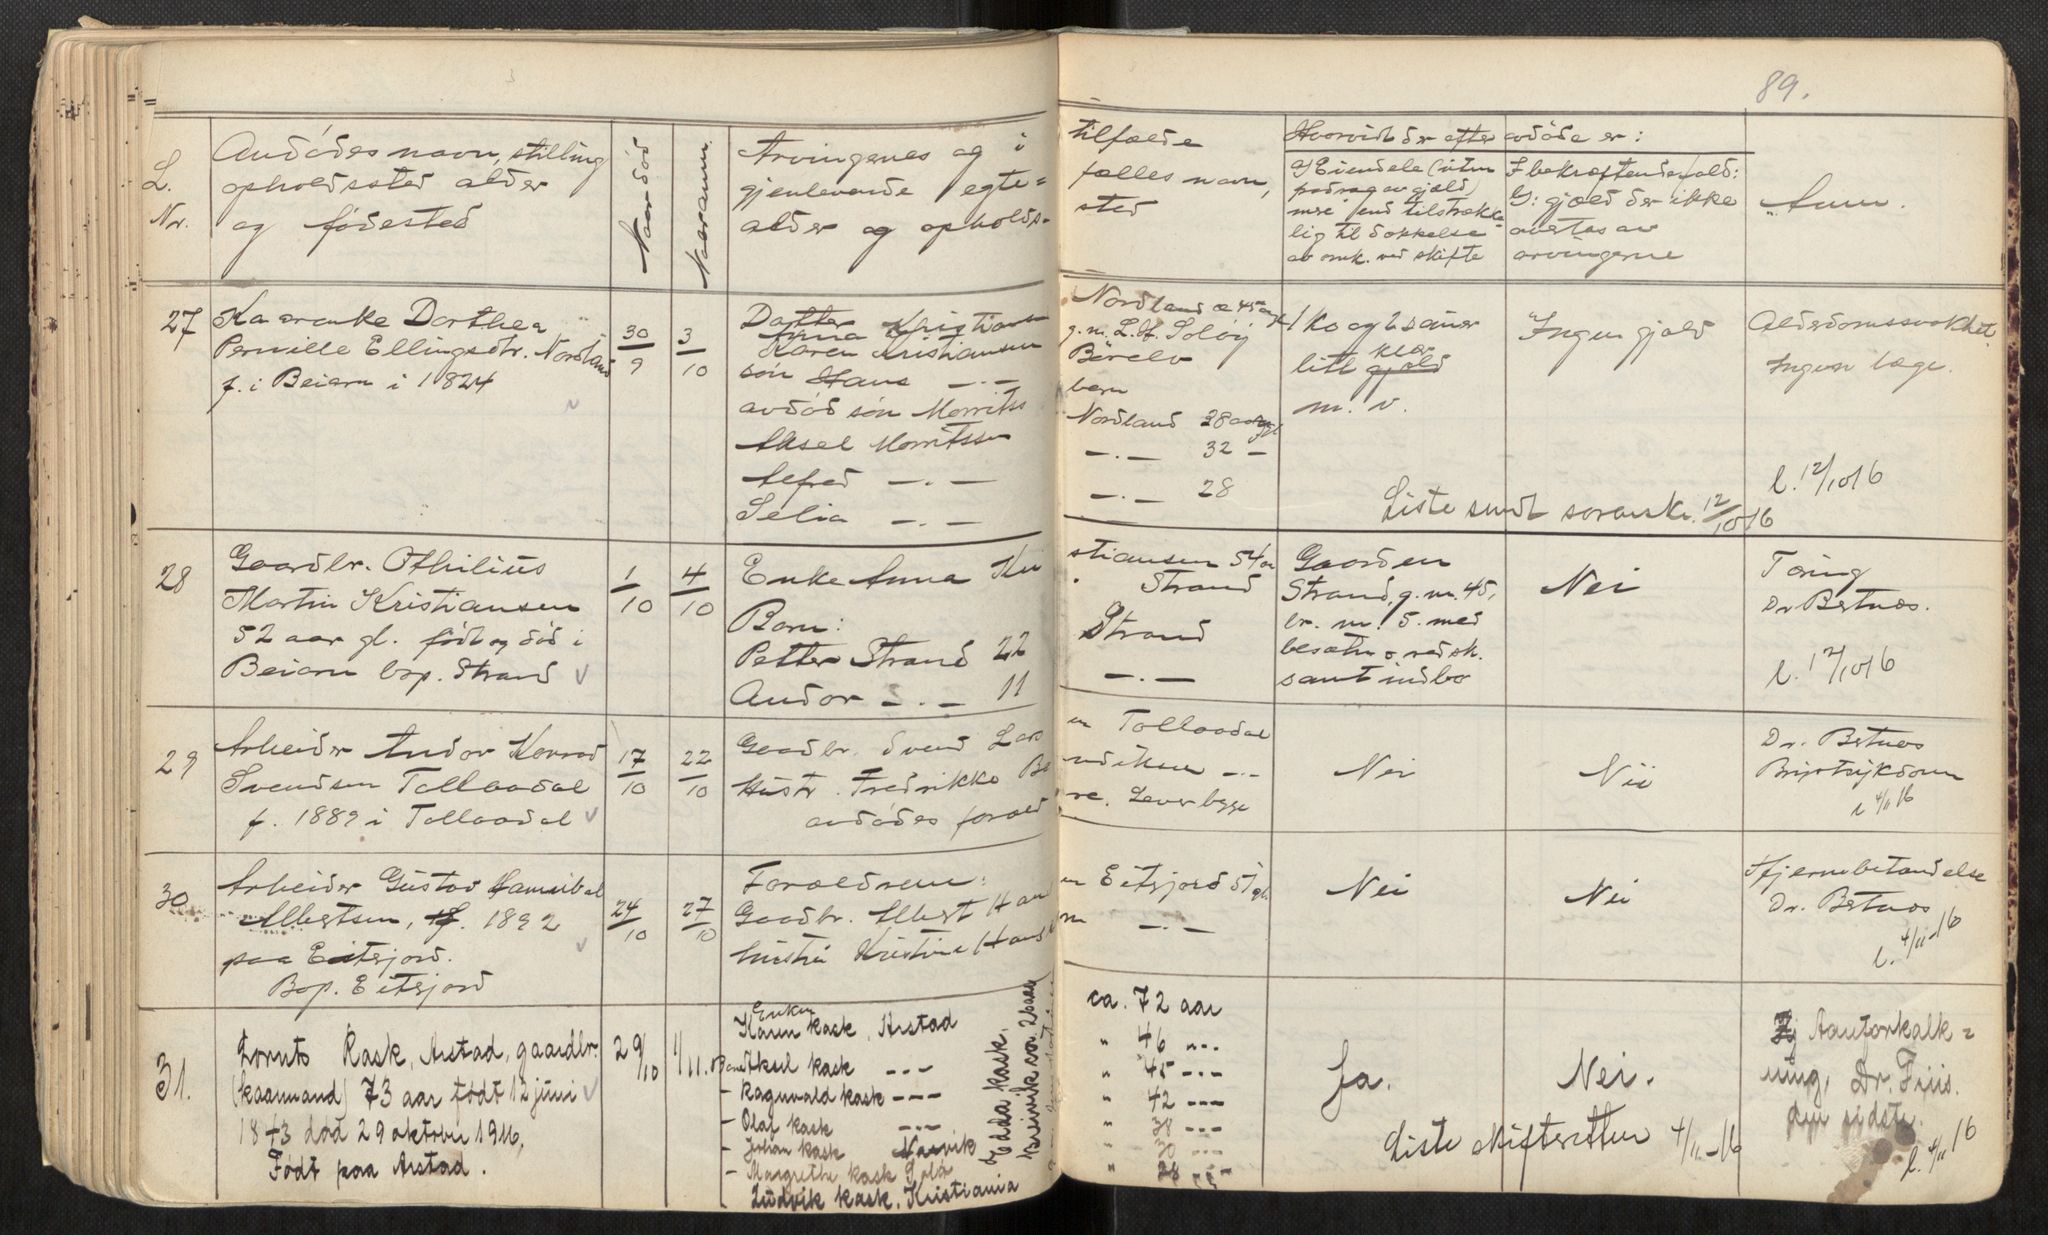 89.
L.
Nr.
Avdødes navn, stilling
opholdssted alder
og fødested
Naar død
Naar anm.
Arvingenes og i
gjenlevende egte=
alder og opholds-
tilfælde
fælles navn,
sted
Hvorvidt der efter avdøde er:
Eiendele (uten
fradrag av gjæld)
mere end tilstrække
lig til dækkelse
av omk. ved skifte
I bekræftende fald:
gjæld der ikke
overtas av
arvingerne
Anm.
27
Kaarenke Dorthea
Pernille Ellingsdtr. Nordland
f. i Beiarn i 1824
30/9
3/10
Datter
Anna Kristianse
Karen Kristiansen
søn Hans —.—
avdød søn Morrits
Aksel Morritssen
Alfred —.—
Selia —.—
Nordland æ 45 aar gl
g.m. L.H. Soløy
Børelv
barn
Nordland 28 aar gl
—.— 32 —
—.— 28
1 ko og 2 sauer
litt klær
gjæld
m. v.
Ingen gjæld
Alderdomssvakhet
Ingen læge.
l. 12/10 16
Liste sendt sorensk. 12/10 16
28
Gaardbr. Othilius
Martin Kristiansen
52 aar gl. født og død i
Beiarn bop. Strand
1/10
4/10
Enke Anna Kri
Barn:
Petter Strand 22
Andor —.— 11
stiansen 54 aar
Strand
Strand
—.—
Gaarden
Strand, g. nr. 45,
br. nr. 5. med
besætn. o. redsk.
samt indbo
Nei
Tæring
Dr Betnes.
l. 12/10 16
29
Arbeider Andor Konrad
Svendsen Tollaadal
f. 1889 i Tollaadal
17/10
22/10
Gaadbr. Svend Lars
Hustr. Fredrikke Be
avdødes foræld
en Tollaadal
ndiksen —.—
re. Lever begge
Nei
Nei
Dr. Betnes
Brystsykdom
l 4/11 16
30
Arbeider Gustav Hannibal
Albertsen, f. 1892
paa Eitefjord.
Bop. Eitefjord
24/10
27/10
Forældrene:
Gaadbr. Albert Han
hustru Kristine Hans
en Eitefjord 51 gl.
n —.—
Nei
Nei
Hjernebetændelse
Dr. Betnes
l. 4/11-16
31.
Lornts Kask, Arstad, gaardbr.
(kaarmand) 73 aar født 12 juni
1843 død 29 oktober 1916,
Født paa Arstad.
29/10
1/11.
Enken
Karen kask, Arstad
Barn Aksel kask —.—
— Ragnvald kask —.—
— Olaf kask —.—
— Johan kask Narvik
— Margrethe kask
Ludvik kask, Kristiania
Edda kask,
ca. 72 aar
" 46 —.—
" 45 —.—
" 42 —.—
" 38 —.—
" 30 —.—
" 28 —.—
Ja.
Nei.
Aartorkalk=
ning, Dr. Friis.
den sidste.
l. 4/11 16
Liste skifteretten 4/11-16